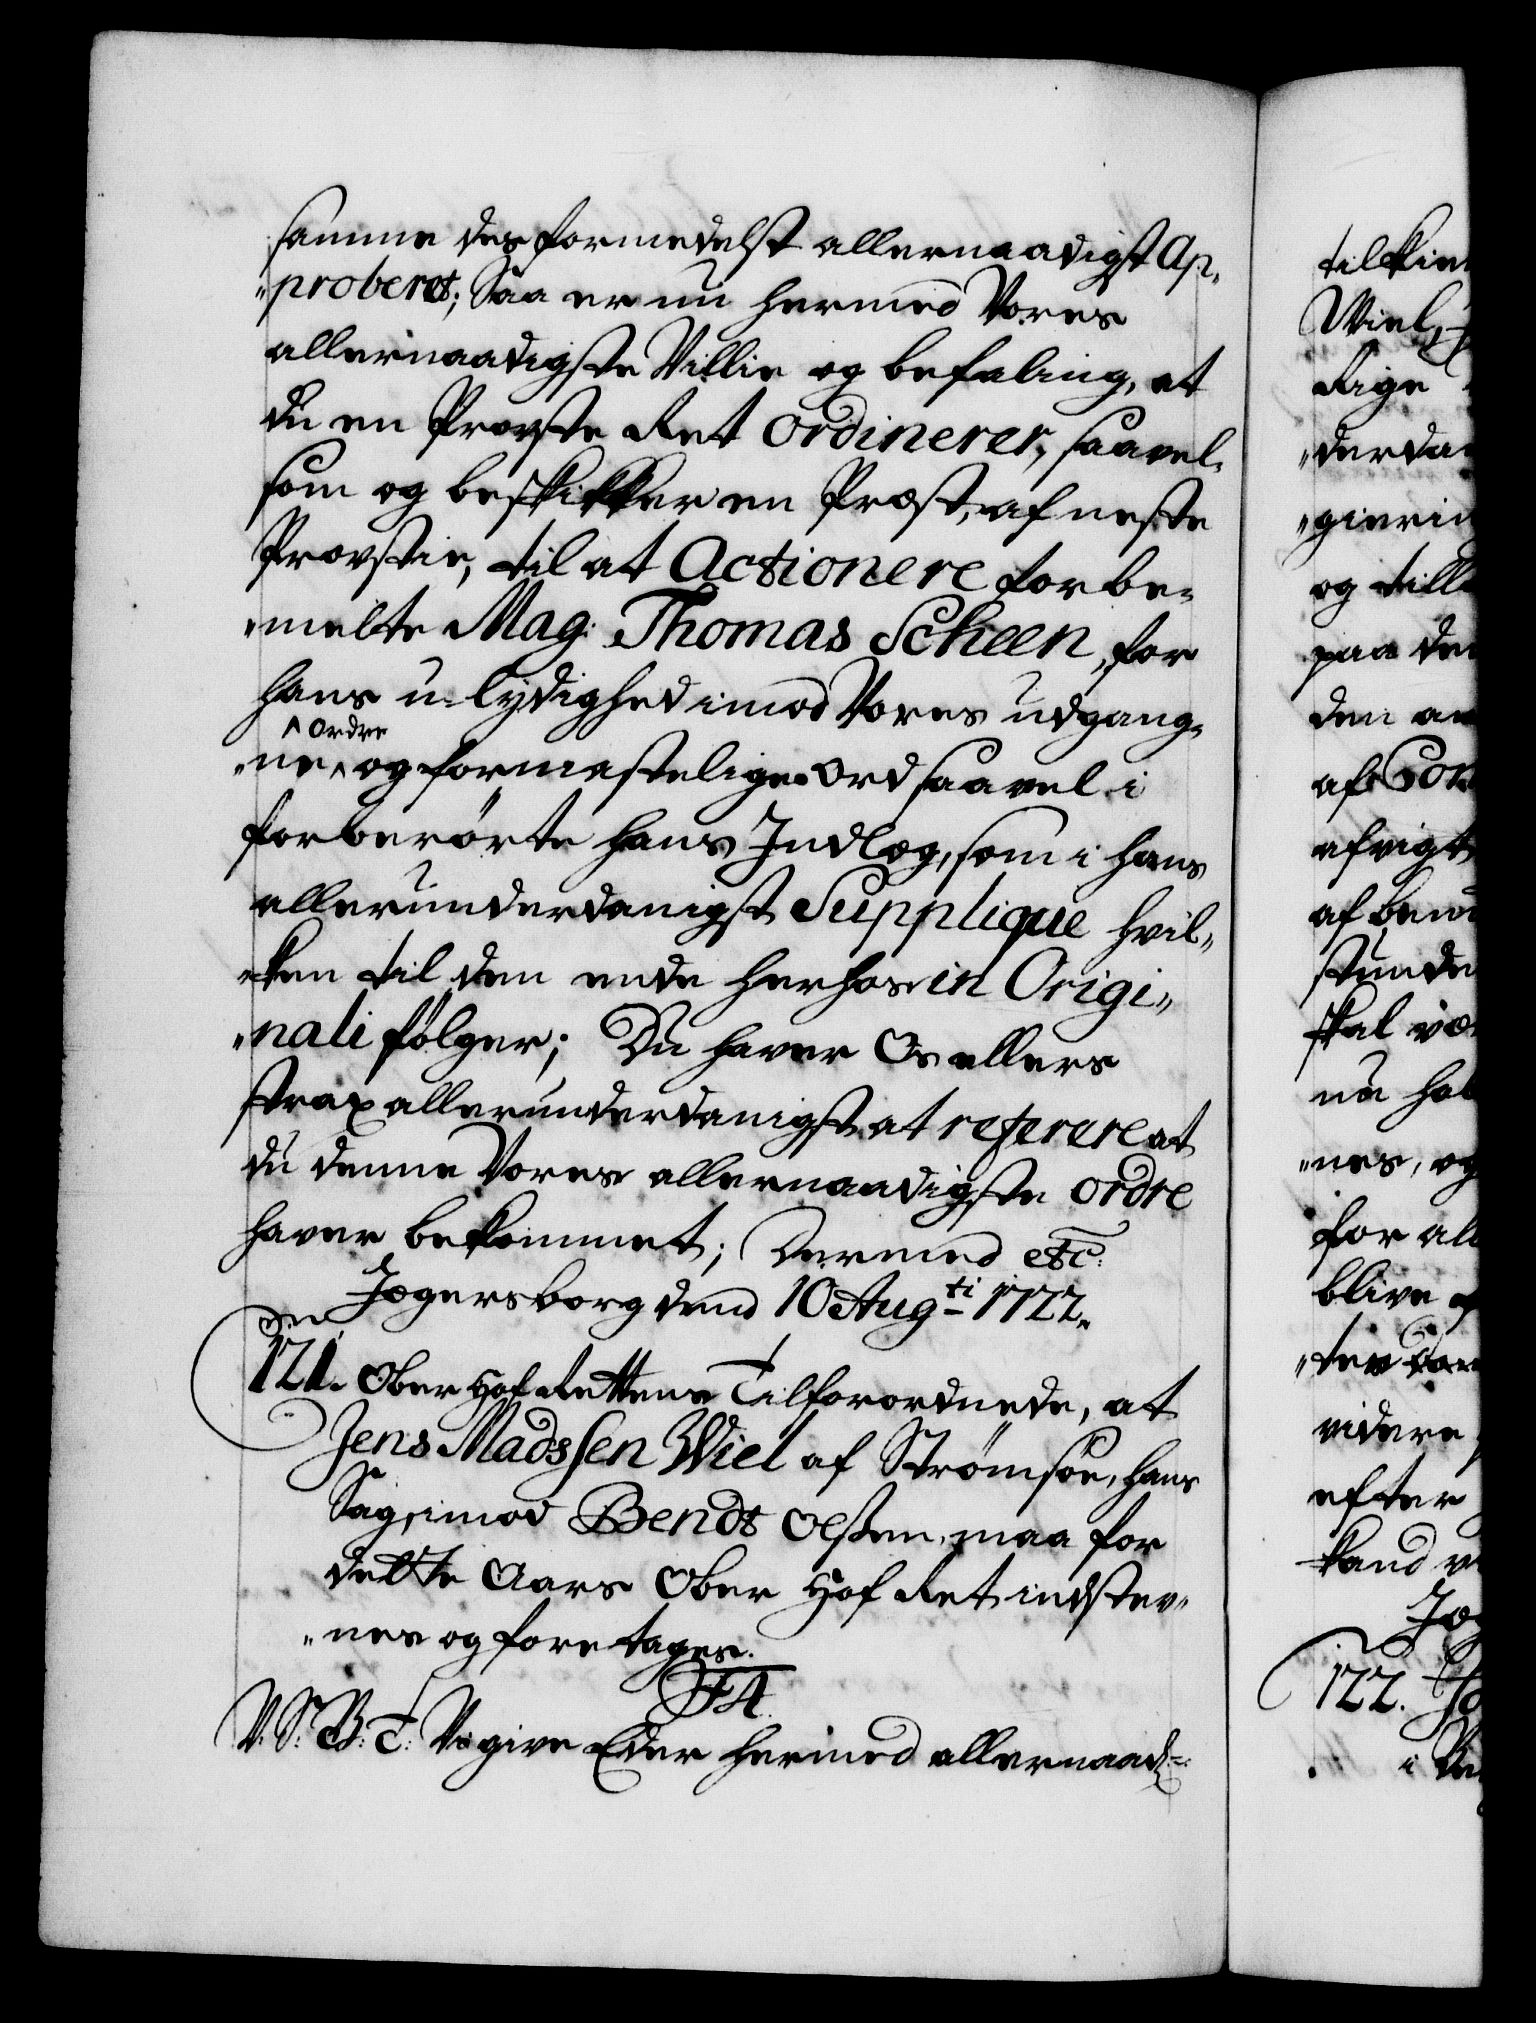 samme des formedelst allernaadigst Ap-
"proberet; Saa er nu hermed Vores
allernaadigste Villie og befaling, at
du en Provste Ret ordinerer, saavel-
som og beskikker en Præst, af neste
Provstie, til at Actionere forbe-
"melte Mag: Thomas Scheen, for
hans u-lydighed imod Vores udgang-
^ ordre
"ne ^ og formastelige ord saavel i
forberørte hans Indlæg, som i hans
allerunderdanigst Supplique hvil-
"ken til den ende herhos in Origi-
"nali følger; Du haver Os ellers
strax allerunderdanigst at referere at
du denne Vores allernaadigste ordre
haver bekommet; Dermed etc:
Jægersborg dend 10 Aug:ti 1722.
121. Ober Hof Rettens Tilforordnede, at
Jens Madssen Wiel af Strømsøe, hans
Sag, imod Bendt Olssen, maa for
dette Aars Ober Hof Ret indstev-
"nes og foretages.
F4.
V. S: B: T: Vi give Eder hermed allernaad:
tilkien
Wiel,
Rige
"derda
"gierin
og till
paa de
den an
af Con
afvigt
af bem
stunde
skal væ
nu hol
"nes, og
for all
blive
"ter
videre
efter
kand v
Jæ
122. Jo
i Re